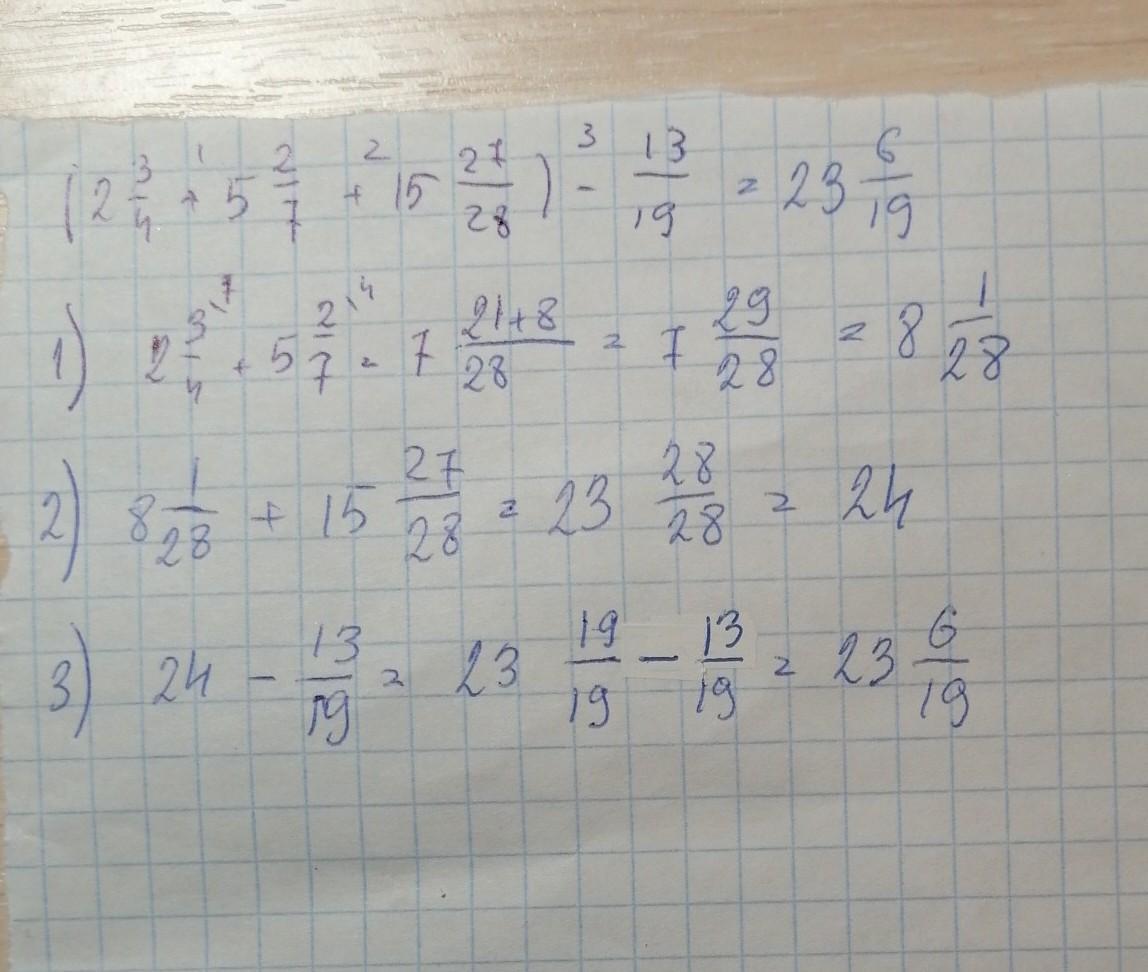 (2 3/4 +¹ 5 2/7 +² 15 27/28) -³ 13/19 = 23 6/19
1) 2 3/4\7 + 5 2/7\4 = 7 21+8/28 = 7 29/28 = 8 1/28
2) 8 1/28 + 15 27/28 = 23 28/28 = 24
3) 24 - 13/19 = 23 19/19 - 13/19 = 23 6/19